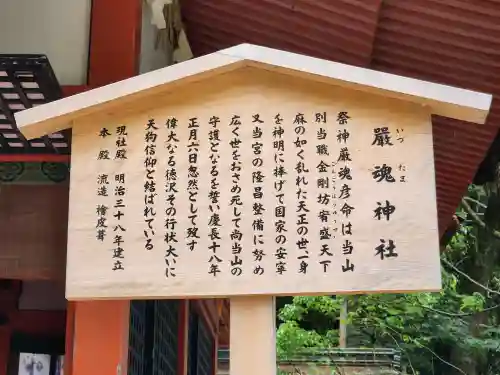 嚴魂神社
いつ たま
祭神厳魂彦命は当山
別当職金剛坊宥盛天下
こんごうぼうゆうせい
麻の如く乱れた天正の世、一身
を神明に捧げて国家の安寧
又当宮の隆昌整備に努め
広く世をおさめ死して尚当山の
守護となるを誓い慶長十八年
正月六日忽然として歿す
偉大なる徳沢その行状大いに
天狗信仰と結ばれている
現社殿 明治三十八年建立
本殿 流造 檜皮葺